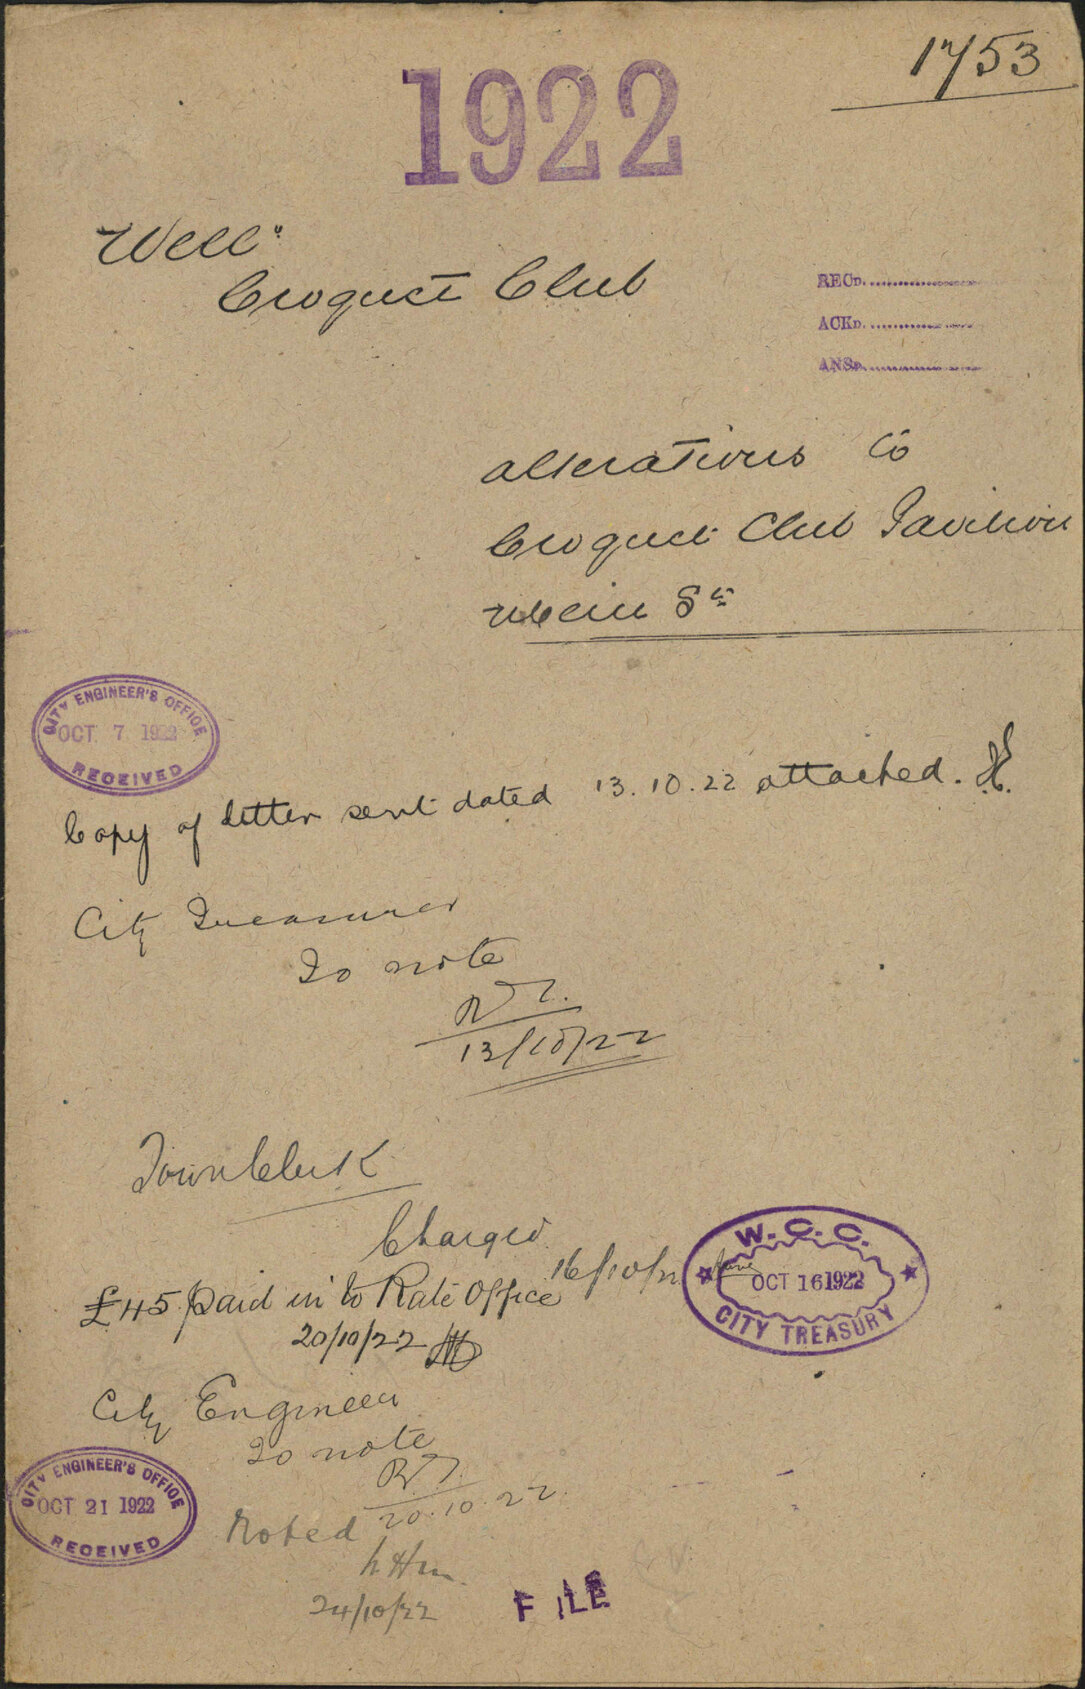 1753
1922
Well"
Croquet Club
RECD.
ACKD.
ANSD.
Alterations to
Croquet Club Pavilion
Weir St
CITY ENGINEER'S OFFICE
OCT 7 1922
RECEIVED
Copy of letter sent dated 13.10.22 attached.
City Treasurer
To note
13/10/22
Town Clerk
Charged
16/10/22
W.C.C.
OCT 16 1922
CITY TREASURY
£45 paid in to Rate Office
20/10/22
City Engineer
To note
20.10.22
CITY ENGINEER'S OFFICE
OCT 21 1922
RECEIVED
Noted
24/10/22
FILE